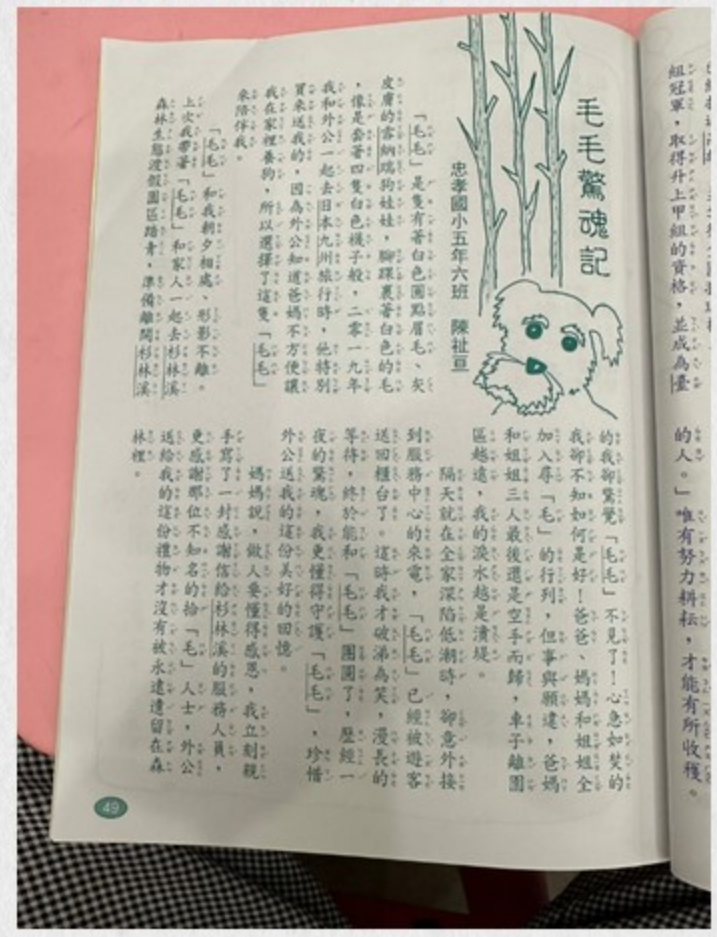 組冠軍，取得升上甲組的資格，並成為臺
的人。」唯有努力耕耘，才能有所收穫。
毛毛驚魂記
忠孝國小五年六班　陳祉亘
「毛毛」是隻有著白色圓點眉毛、灰
皮膚的雪納瑞狗娃娃，腳踝裹著白色的毛
，像是套著四隻白色襪子般，二零一九年
我和外公一起去日本九州旅行時，他特別
買來送我的，因為外公知道爸媽不方便讓
我在家裡養狗，所以選擇了這隻「毛毛」
來陪伴我。
「毛毛」和我朝夕相處、形影不離。
上次我帶著「毛毛」和家人一起去杉林溪
森林生態渡假園區踏青，準備離開杉林溪
的我卻驚覺「毛毛」不見了！心急如焚的
我卻不知如何是好！爸爸、媽媽和姐姐全
加入尋「毛」的行列，但事與願違，爸媽
和姐姐三人最後還是空手而歸，車子離園
區越遠，我的淚水越是潰堤。
隔天就在全家深陷低潮時，卻意外接
到服務中心的來電，「毛毛」已經被遊客
送回櫃台了。這時我才破涕為笑，漫長的
等待，終於能和「毛毛」團圓了，歷經一
夜的驚魂，我更懂得守護「毛毛」，珍惜
外公送我的這份美好的回憶。
媽媽說，做人要懂得感恩，我立刻親
手寫了一封感謝信給杉林溪的服務人員，
更感謝那位不知名的拾「毛」人士，外公
送給我的這份禮物才沒有被永遠遺留在森
林裡。
49